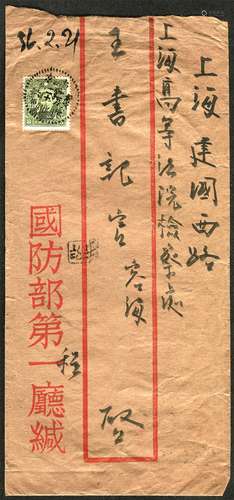 上海建國西路
上海高等法院檢察處
王書記官容海 啓
36.2.21
國防部第一廳緘
程